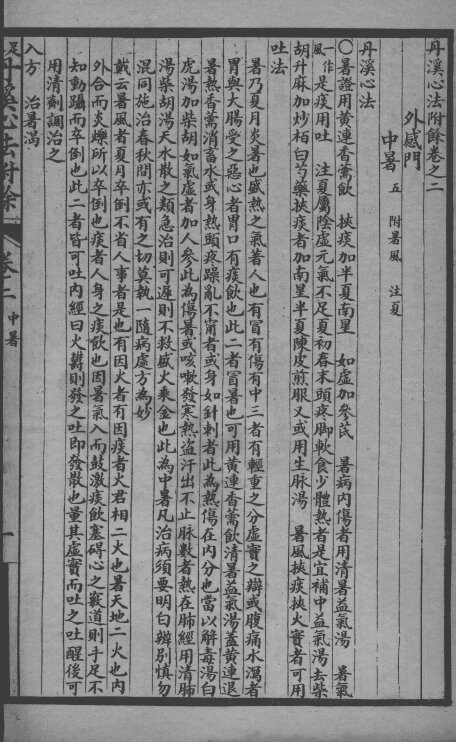 丹溪心法附餘卷之二
外感門
中暑 五 附暑風 注夏
丹溪心法
○暑證用黃連香薷飲 挾痰加半夏南星 如虛加參芪 暑病內傷者用清暑益氣湯 暑氣
一作風是痰用吐 注夏屬陰虛元氣不足夏初春末頭疼脚軟食少體熱者是宜補中益氣湯去柴
胡升麻加炒栢白芍藥挾痰者加南星半夏陳皮煎服又或用生脉湯 暑風挾痰挾火實者可用
吐法
暑乃夏月炎暑也盛熱之氣著人也有冒有傷有中三者有輕重之分虛實之辯或腹痛水瀉者
胃與大腸受之惡心者胃口有痰飲也此二者冒暑也可用黃連香薷飲清暑益氣湯蓋黃連退
暑熱香薷消蓄水或身熱頭疼躁亂不甯者或身如針刺者此為熱傷在內分也當以解毒湯白
虎湯加柴胡如氣虛者加人參此為傷暑或咳嗽發寒熱盜汗出不止脉數者熱在肺經用清肺
湯柴胡湯天水散之類急治則可遲則不救盛火乘金也此為中暑凡治病須要明白辨別慎勿
混同施治春秋間亦或有之切莫執一隨病處方為妙
戴云暑風者夏月卒倒不省人事者是也有因火者有因痰者火君相二火也暑天地二火也內
外合而炎爍所以卒倒也痰者人身之痰飲也因暑氣入而鼓激痰飲塞碍心之竅道則手足不
知動躡而卒倒也此二者皆可吐內經曰火鬱則發之吐即發散也量其虛實而吐之吐醒後可
用清劑調治之
入方 治暑渴
丹溪心法附餘 卷二 中暑 一